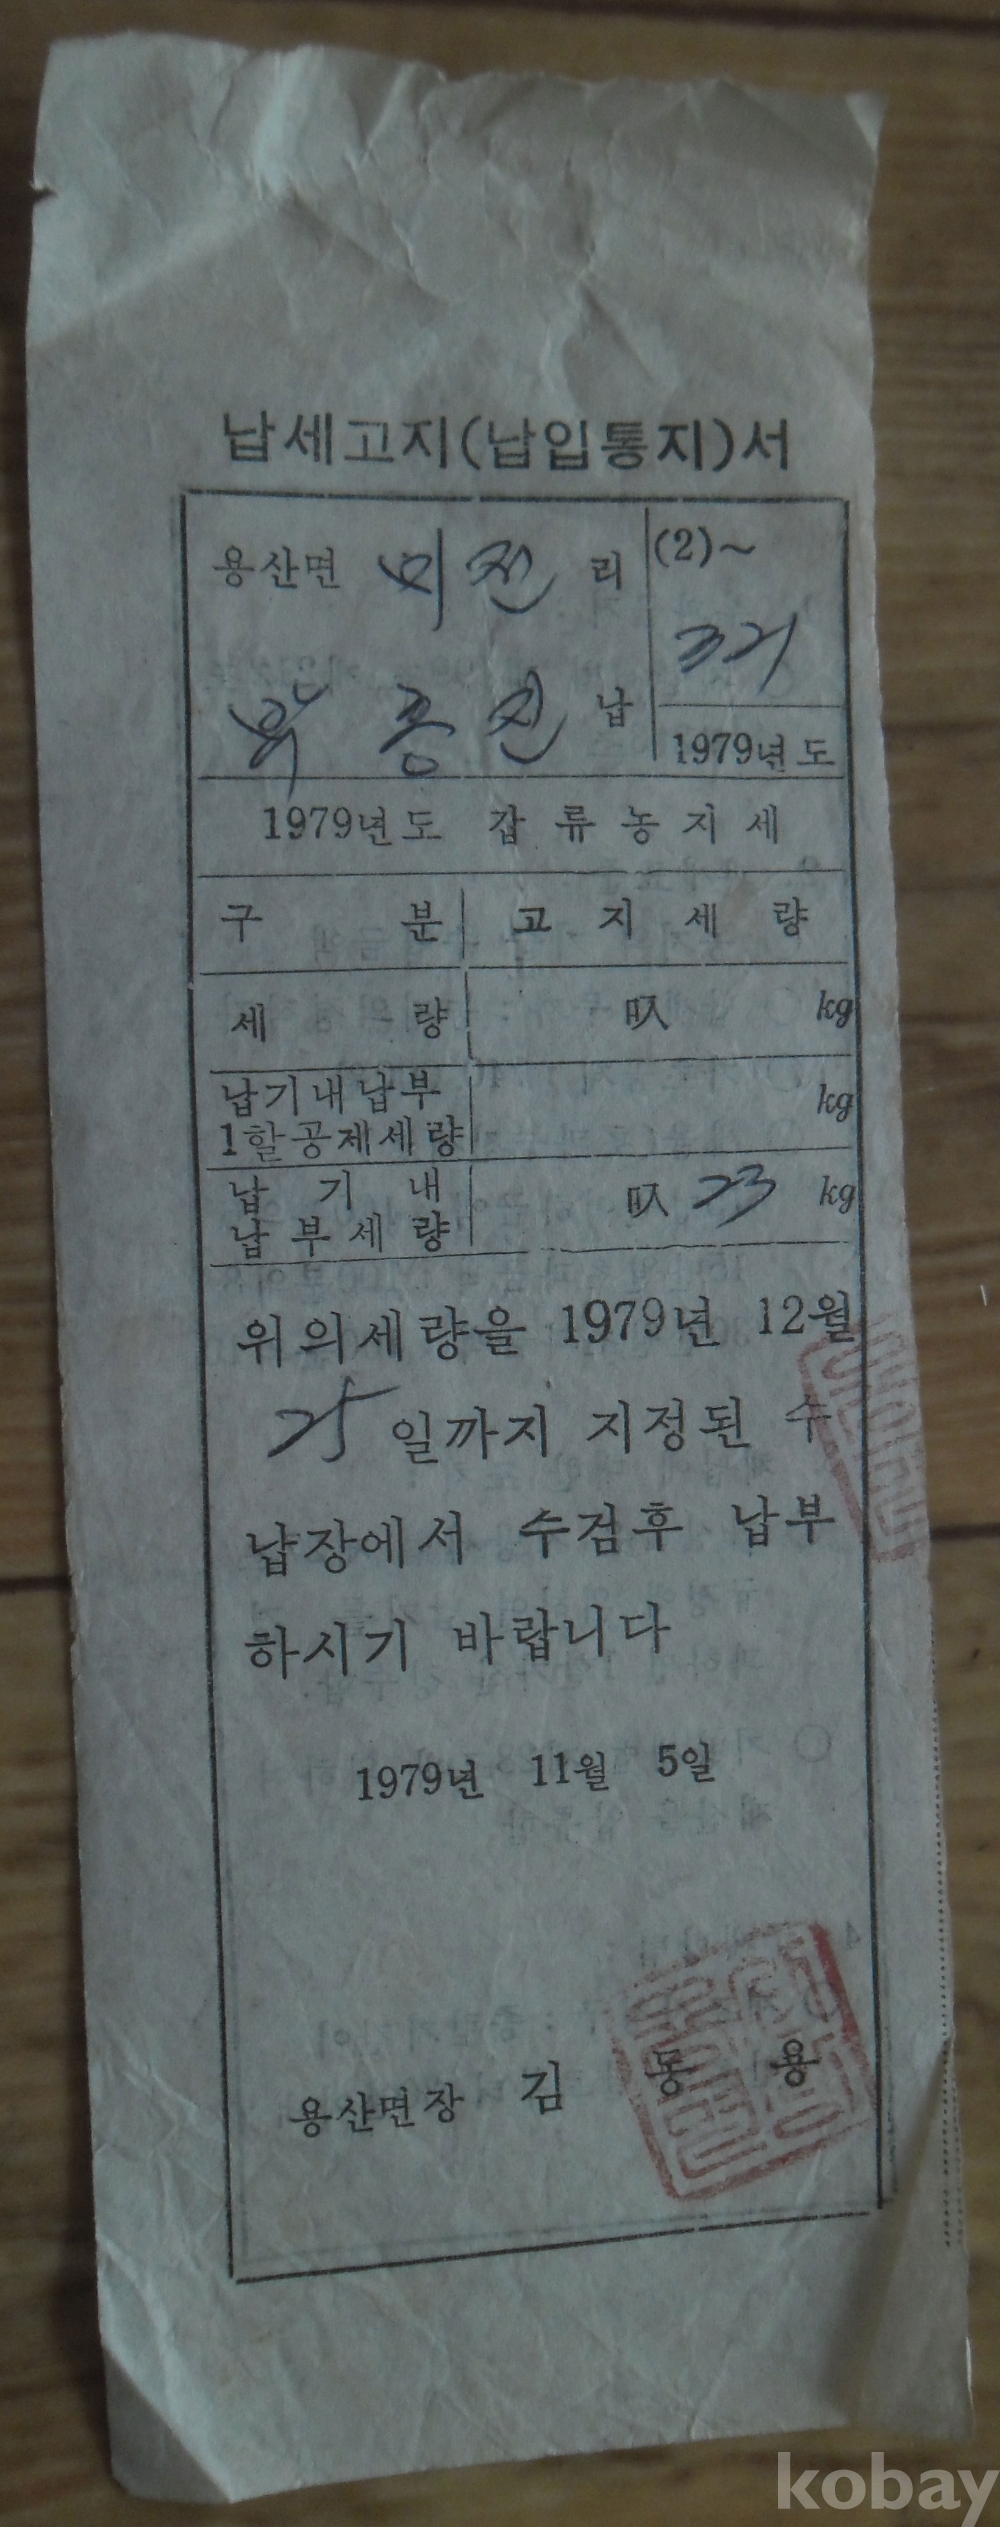 납세고지(납입통지)서
용산면 미전 리
(2)~
321
종진 납
1979년도
1979년도 갑류농지세
구분 고지세량
세량 叺 kg
납기내납부
1할공제세량 kg
납기내
납부세량 叺 23 kg
위의세량을 1979년 12월
25일까지 지정된 수
납장에서 수검후 납부
하시기 바랍니다
1979년 11월 5일
용산면장 김동용
kobay